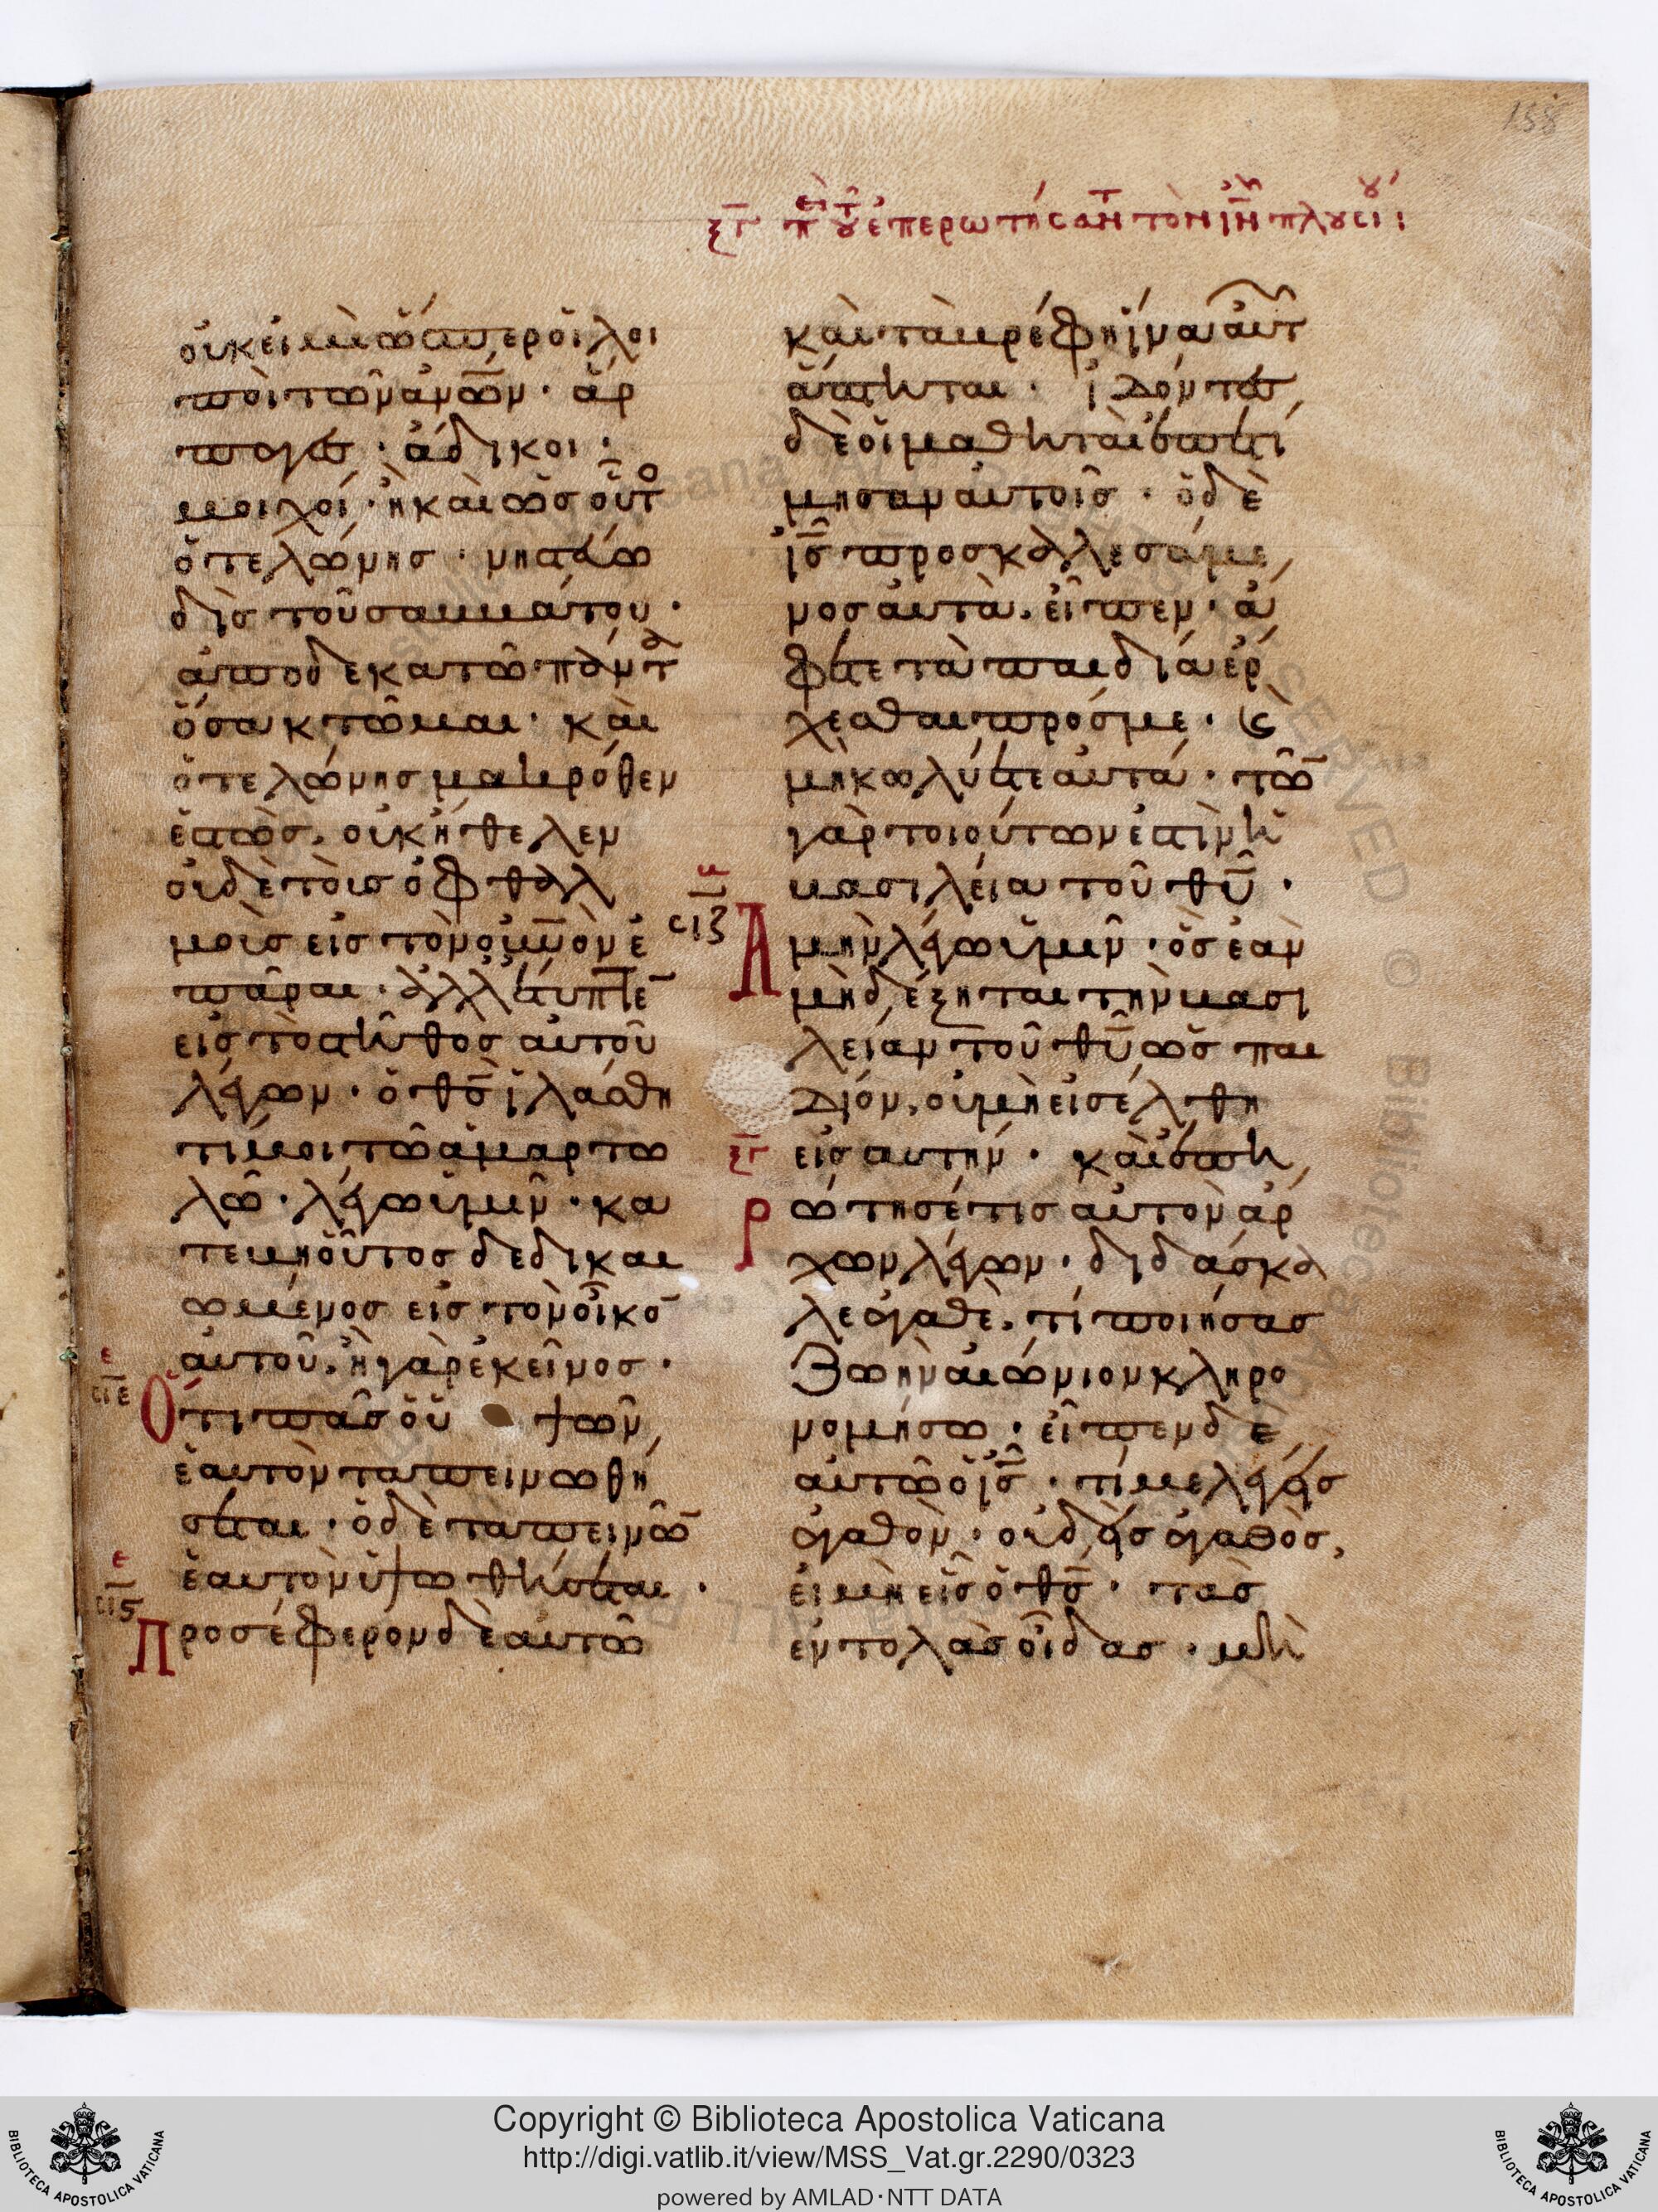 158
ξϛ πε τοῦ ἐπερωτήσαντ τὸν ιν πλουσίου:
οὐκ εἰμὶ ὥσπερ οἱ λοι
ποὶ τῶν ἀνων· ἅρ
παγες· ἄδικοι·
μοιχοί· ἢ καὶ ὡς οὗτο
ὁ τελώνης· νηστεύω
δὶς τοῦ σαββάτου·
ἀποδεκατῶ πάντα
ὅσα κτῶμαι· καὶ
ὁ τελώνης μακρόθεν
ἑστὼς, οὐκ ἤθελεν
οὐδὲ τοὺς ὀφθαλ
μοὺς εἰς τὸν οὐνὸν ἐ
πᾶραι· ἀλλ' ἔτυπτε
εἰς τὸ στῆθος αὐτοῦ
λέγων· ὁ θς ἱλάσθη
τί μοι τῶ ἁμαρτω
λῶ· λέγω ὑμῖν· κα
τέβη οὗτος δεδικαι
ωμένος εἰς τὸν οἶκο
αὐτοῦ, ἢ γὰρ ἐκεῖνος·
ε
σιε
Ὅτι πᾶς ὁ ὑψῶν
ἑαυτὸν ταπεινωθή
σεται· ὁ δὲ ταπεινῶ
ἑαυτὸν ὑψωθήσεται·
ε
σις
Προσέφερον δὲ αὐτῶ
καὶ τὰ βρέφη ἵνα αὐτ
ἅπτηται· ἰδόντες
δὲ οἱ μαθηταὶ ἐπετί
μησαν αὐτοῖς· ὁ δὲ
ις προσκαλλεσάμε
νος αὐτὰ, εἶπεν· ἄ
φετε τὰ παιδία ἔρ
χεσθαι πρός με· καὶ
μὴ κωλύετε αὐτά· τῶ
γὰρ τοιούτων ἐστὶν ἡ
βασιλεία τοῦ θυ·
σιζ
Ἀμὴν λέγω ὑμῖν· ὃς ἐὰν
μὴ δέξηται τὴν βασι
λείαν τοῦ θυ ὡς παι
δίον, οὐ μὴ εἰσέλθη
ξϛ
εἰς αὐτήν· καὶ ἐπη
ρώτησέ τις αὐτὸν ἄρ
χων λέγων· διδάσκα
λε ἀγαθὲ, τί ποιήσας
ζωὴν αἰώνιον κληρο
νομήσω· εἶπεν δὲ
αὐτῶ ὁ ις· τί με λέγεις
ἀγαθὸν· οὐδεὶς ἀγαθὸς,
εἰ μὴ εἷς ὁ θς· τὰς
ἐντολὰς οἶδας· μὴ
Copyright © Biblioteca Apostolica Vaticana
http://digi.vatlib.it/view/MSS_Vat.gr.2290/0323
powered by AMLAD·NTT DATA
BIBLIOTECA APOSTOLICA VATICANA
BIBLIOTECA APOSTOLICA VATICANA